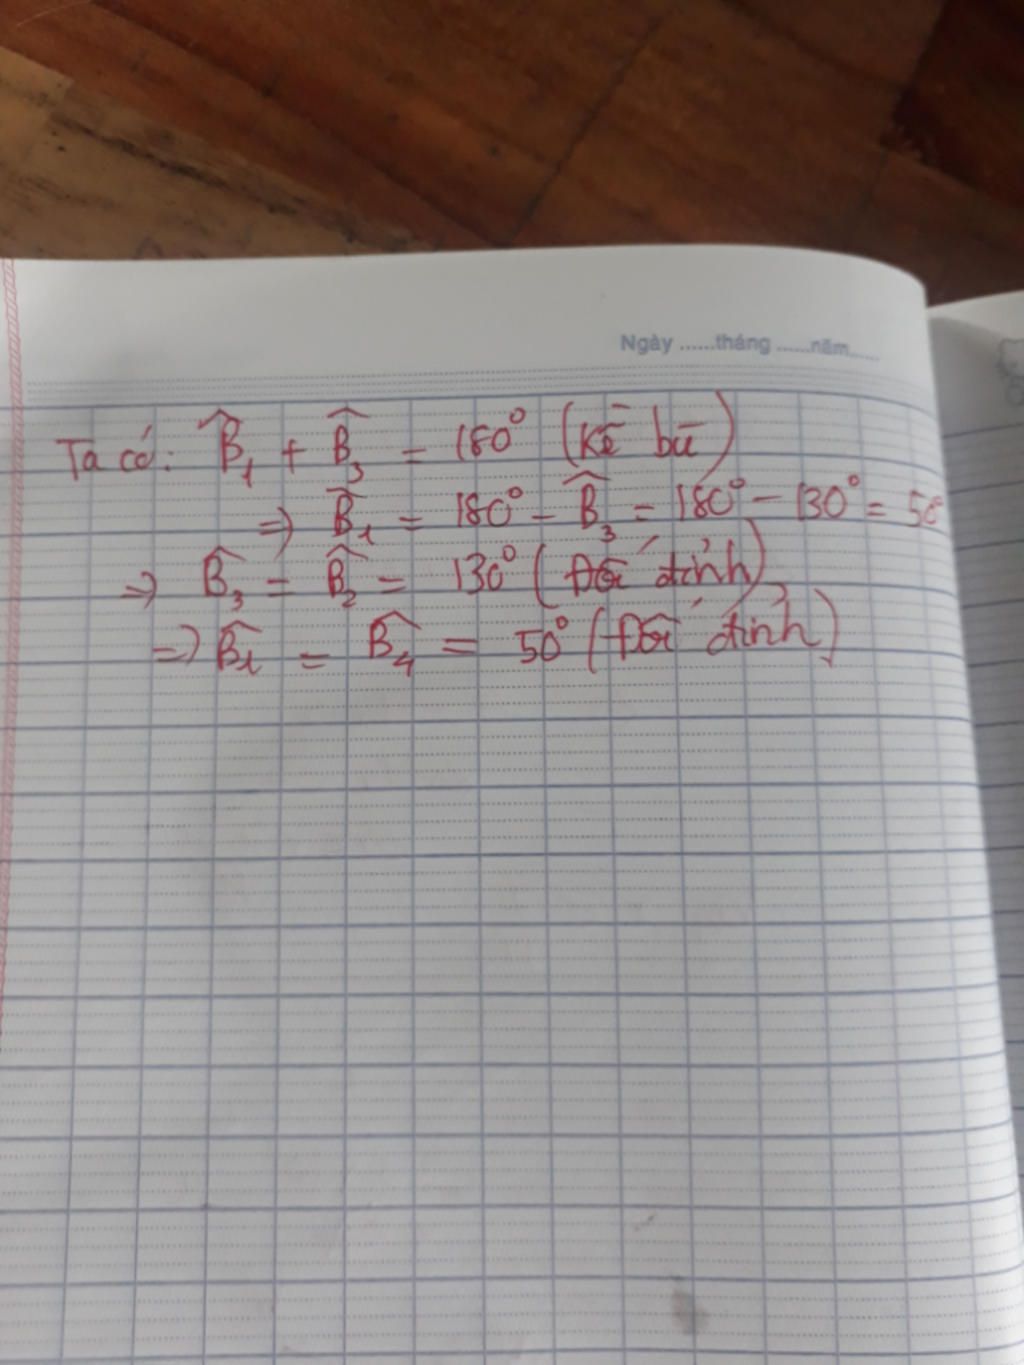 Ngày ......tháng ......năm......
Ta có: B̂₁ + B̂₃ = 180° (kề bù)
=> B̂₁ = 180° - B̂₃ = 180° - 130° = 50°
=> B̂₃ = B̂₂ = 130° (Đối đỉnh)
=> B̂₁ = B̂₄ = 50° (Đối đỉnh)